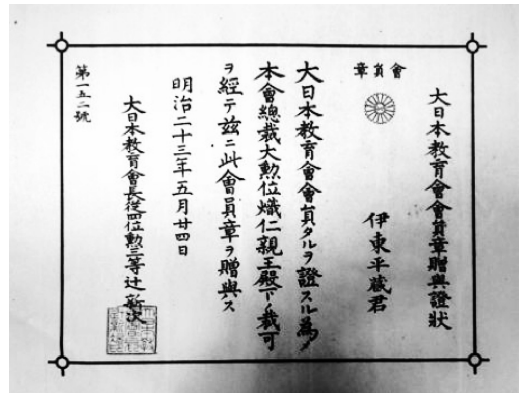 大日本敎育會會員章贈與證狀
會員章
伊東平蔵君
大日本敎育會會員タルヲ證スル爲メ
本會總裁大勲位熾仁親王殿下ノ裁可
ヲ經テ茲ニ此會員章ヲ贈與ス
明治二十三年五月廿四日
大日本敎育會長從四位勲三等辻新次
第一五二號